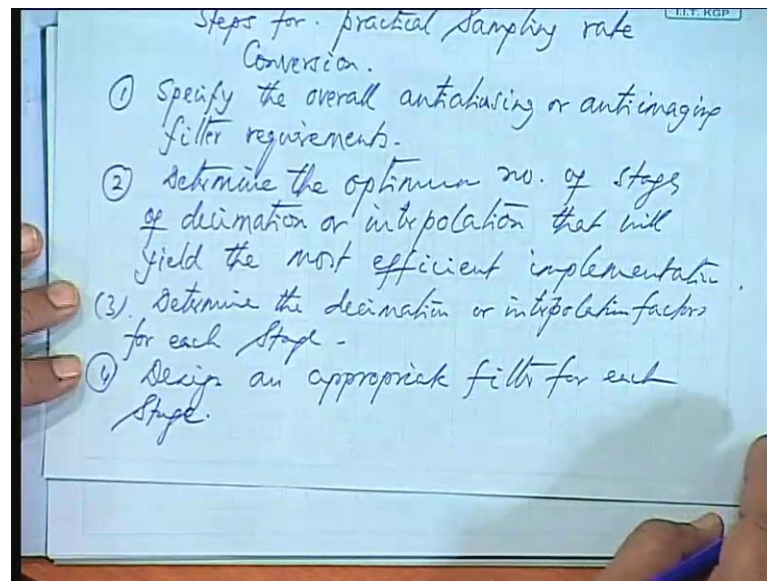 I.I.T. KGP
Steps for. practical Sampling rate
Conversion.
① Specify the overall antialiasing or antiimaging
filter requirements.
② Determine the optimum no. of stages
of decimation or interpolation that will
yield the most efficient implementation.
(3). Determine the decimation or interpolation factors
for each stage -
④ Design an appropriate filter for each
Stage.